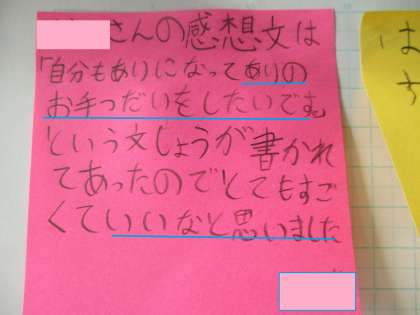 さんの感想文は
「自分もありになってありの
お手つだいをしたいです。
という文しょうが書かれ
てあったのでとてもすご
くていいなと思いました
は